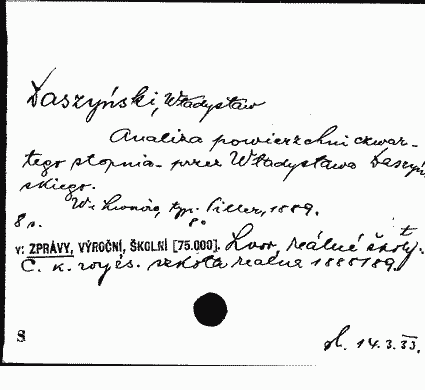 Daszyński, Władysław
Analiza powierzchni czwar-
tego stopnia przez Władysława Daszyń
skiego.
We Lwowie, typ. Piller, 1889.
8 s. 8°
v: ZPRÁVY, VÝROČNÍ, ŠKOLNÍ [75.000]. Lvov, reálné školy.
C. k. szkoła realna 1888/89.
S
14.3.33.